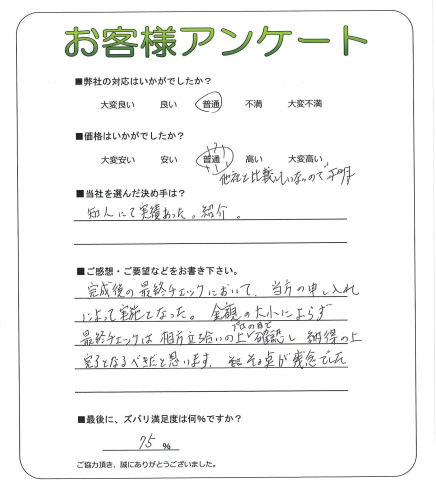 お客様アンケート
■弊社の対応はいかがでしたか？
大変良い 良い 普通 不満 大変不満
■価格はいかがでしたか？
大変安い 安い 普通 高い 大変高い
他社と比較していないので不明
■当社を選んだ決め手は？
知人にて実績あった。紹介。
■ご感想・ご要望などをお書き下さい。
完成後の最終チェックにおいて、当方の申し入れ
によって実施となった。金額の大小によらず
プロの目で
最終チェックは相方立ち合いの上 確認し 納得の上
完了となるべきだと思います。その点が残念でした
■最後に、ズバリ満足度は何％ですか？
75 ％
ご協力頂き、誠にありがとうございました。